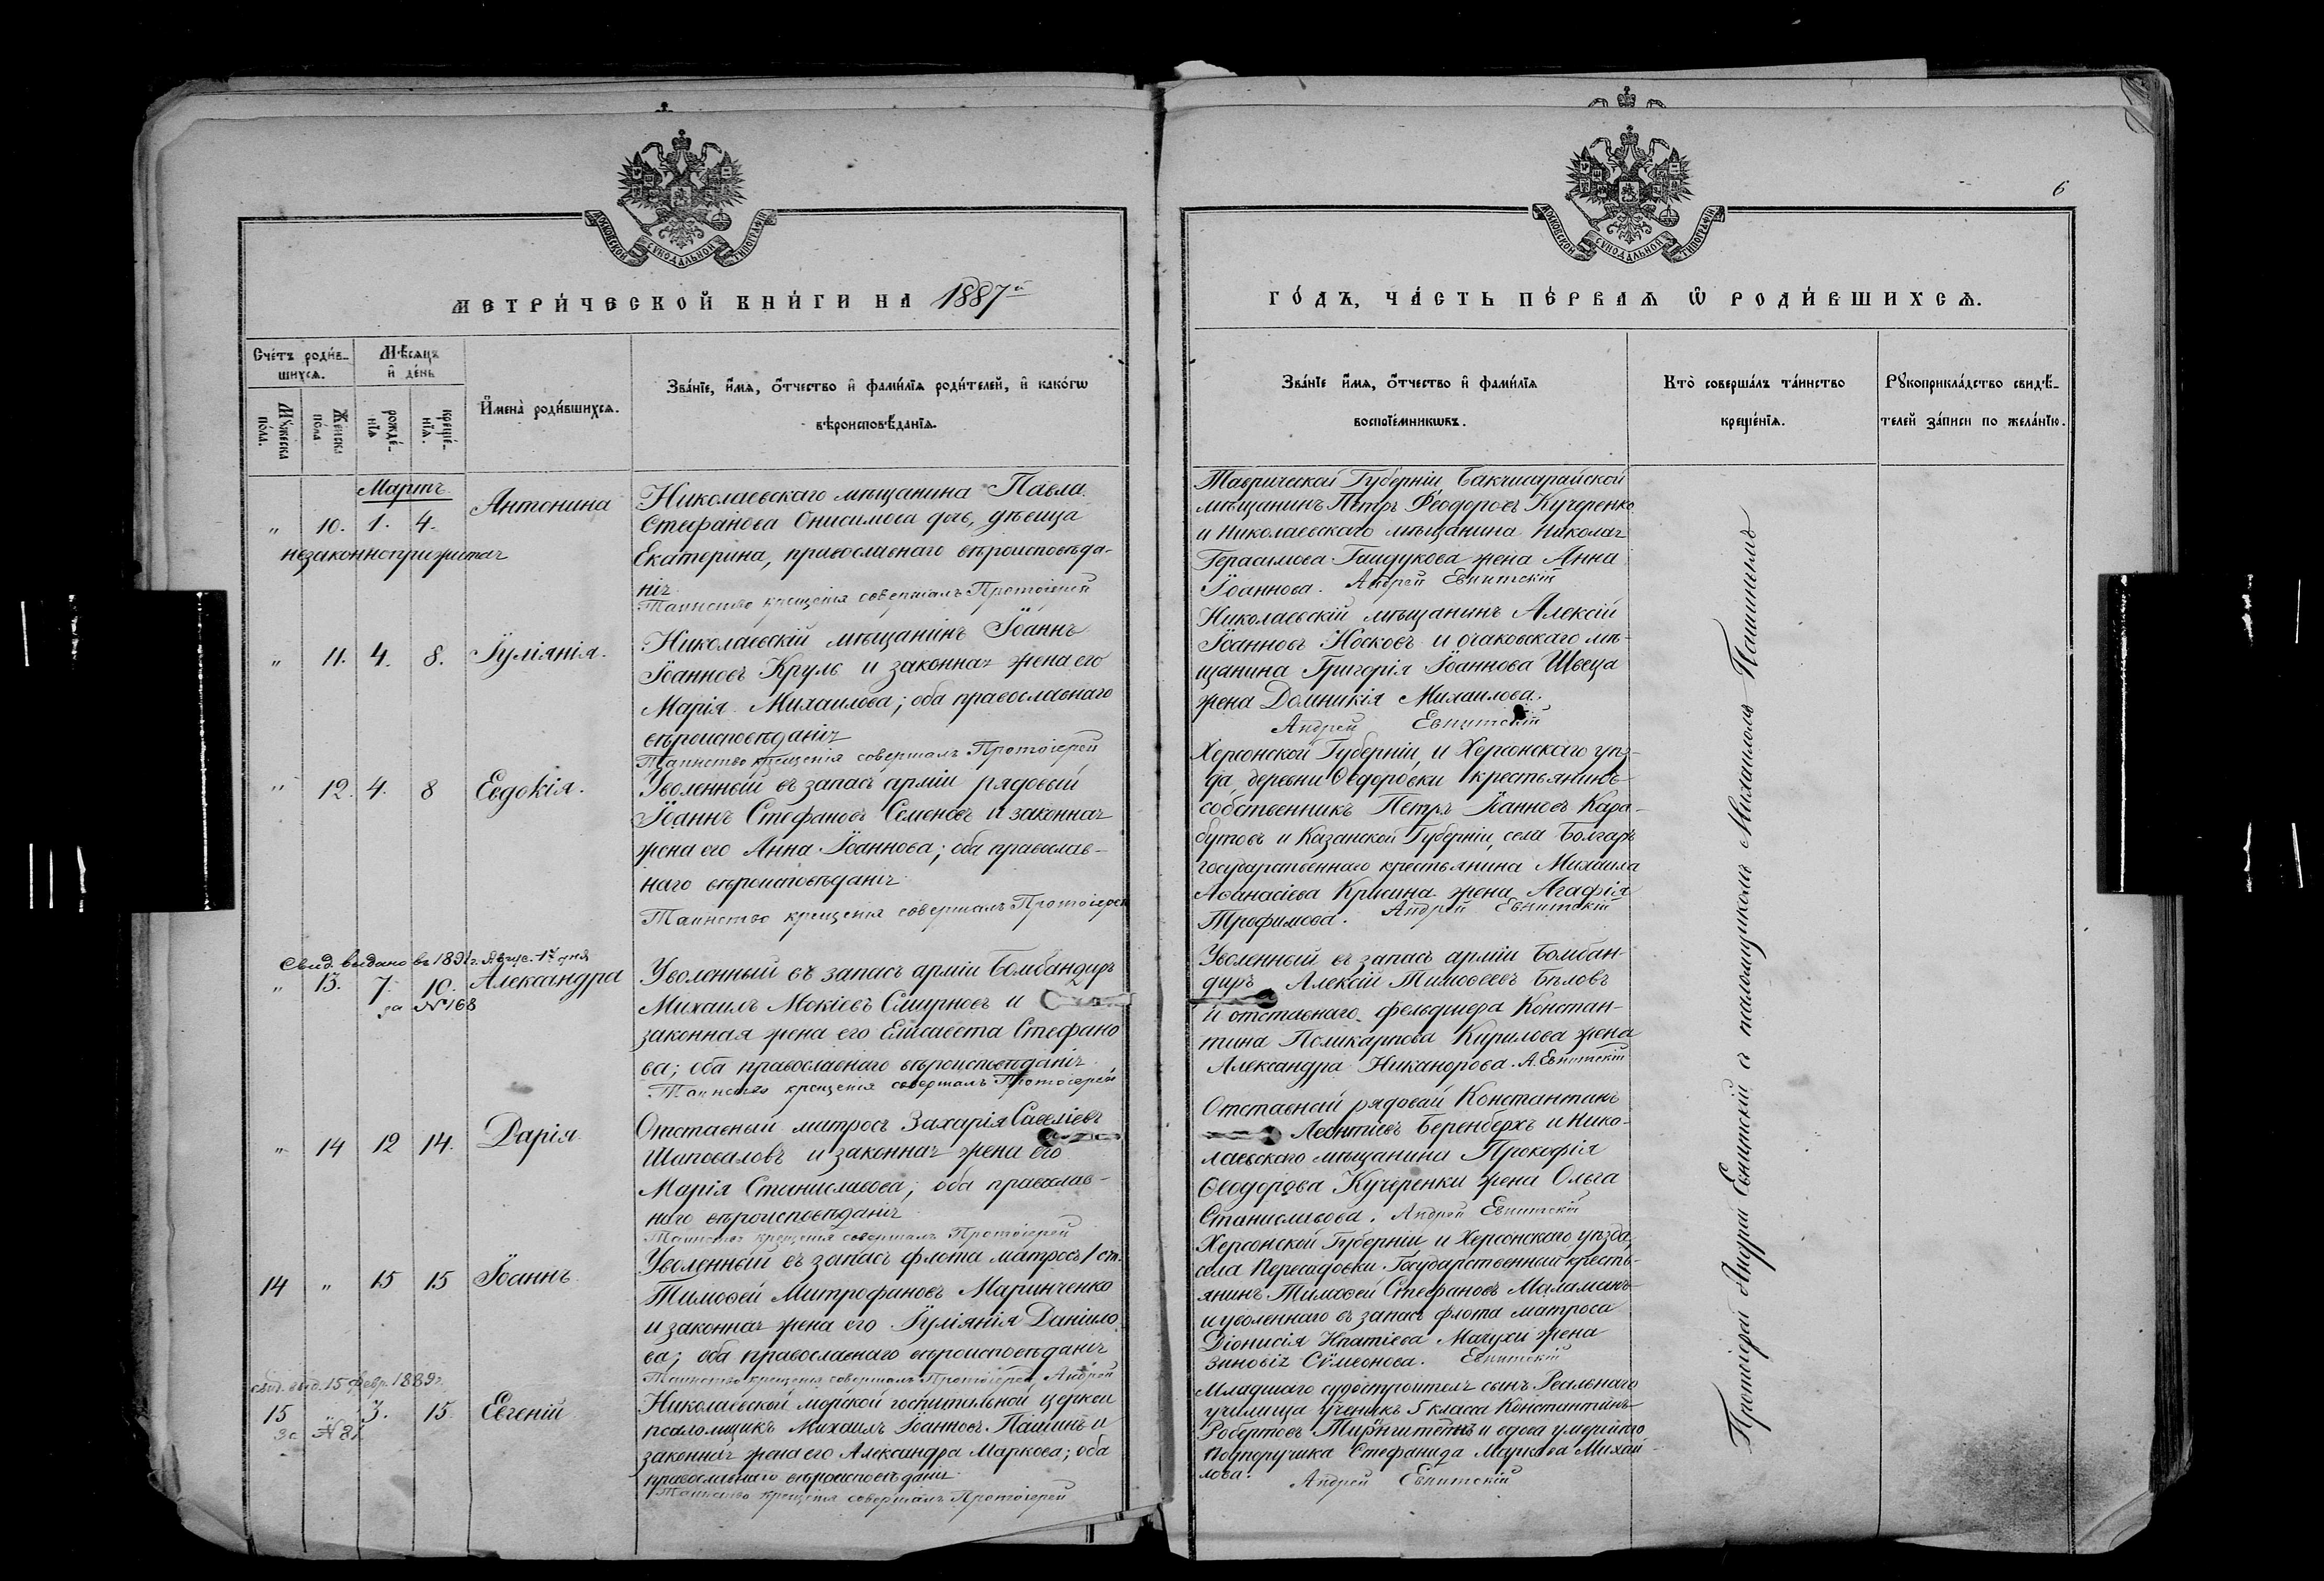 6
МОСКОВСКОЙ СѴНОДАЛЬНОЙ ТИПОГРАФІИ
МОСКОВСКОЙ СѴНОДАЛЬНОЙ ТИПОГРАФІИ
МЕТРИ́ЧЕСКОЙ КНИ́ГИ НА 1887й
ГО́ДЪ, ЧА́СТЬ ПЕ́РВАѦ Ѡ҆ РОДИ́ВШИХСѦ.
Сче́тъ роди́в-
шихсѧ.
Мѣ́сѧцъ
и҆ де́нь
И҆мена̀ роди́вшихсѧ.
Зва́нїе, и҆́мѧ, ѻ҆́тчество и҆ фами́лїѧ роди́телей, и҆ како́гѡ
вѣроисповѣ́данїѧ.
Мꙋжеска
по́ла.
Же́нска
по́ла
рожде́-
нїѧ
креще́-
нїѧ.
Зва́нїе и҆́мѧ, ѻ҆́тчество и҆ фами́лїѧ
воспрїе́мникѡвъ.
Кто̀ соверша́лъ та́инство
креще́нїѧ.
Рꙋкоприкла́дство свидѣ́-
телей за́писи по жела́нїю.
Мартъ
" 10. 1. 4. Антонина
незаконноприжитая
Николаевскаго мѣщанина Павла
Стефанова Онисимова дочь, дѣвица
Екатерина, православнаго вѣроисповѣда-
нія
Таинство крещенія совершалъ Протоіерей
Таврической Губерніи Бакчисарайской
мѣщанинъ Петръ Ѳеодоровъ Кучеренко
и Николаевскаго мѣщанина Николая
Герасимова Гайдукова жена Анна
Іоаннова. Андрей Евнитскій
" 11. 4. 8. Іуліянія.
Николаевскій мѣщанинъ Іоаннъ
Іоанновъ Круль и законная жена его
Марія Михаилова; оба православнаго
вѣроисповѣданія
Таинство крещенія совершалъ Протоіерей
Николаевскій мѣщанинъ Алексій
Іоанновъ Носковъ и очаковскаго мѣ-
щанина Григорія Іоаннова Швеца
жена Домникія Михаилова.
Андрей Евнитскій
" 12. 4. 8 Евдокія.
Уволенный въ запасъ арміи рядовый
Іоаннъ Стефановъ Семеновъ и законная
жена его Анна Іоаннова; оба православ-
наго вѣроисповѣданія
Таинство крещенія совершалъ Протоіерей
Херсонской Губерніи, и Херсонскаго уѣз-
да деревни Ѳедоровки крестьянинъ
собственникъ Петръ Іоанновъ Кара-
бутовъ и Казанской Губерніи, села Болгаръ
государственнаго крестьянина Михаила
Аѳанасіева Крисина жена Агафія
Трофимова. Андрей Евнитскій
Свид. выдано въ 1891г. Авгус. 17 дня
" 13. 7. 10. Александра
за № 168
Уволенный въ запасъ арміи Бомбандиръ
Михаилъ Мокіевъ Смирновъ и
законная жена его Елисавета Стефано
ва; оба православнаго вѣроисповѣданія
Таинство крещенія совершалъ Протоіерей
Уволенный въ запасъ арміи Бомбан-
диръ Алексій Тимоѳеевъ Бѣловъ
и отставнаго фельдшера Констан-
тина Поликарпова Кирилова жена
Александра Никанорова. А. Евнитскій
" 14 12 14. Дарія
Отставный матросъ Захарія Савеліевъ
Шаповаловъ и законная жена его
Марія Станиславова; оба православ-
наго вѣроисповѣданія
Таинство крещенія совершалъ Протоіерей
Отставный рядовый Константинъ
Леонтіевъ Беренберхъ и Нико-
лаевскаго мѣщанина Прокофія
Ѳеодорова Кучеренки жена Ольга
Станиславова. Андрей Евнитскій
14 " 15 15 Іоаннъ
Уволенный въ запасъ флота матросъ 1 ст.
Тимоѳей Митрофановъ Маринченко
и законная жена его Іуліянія Даніило
ва; оба православнаго вѣроисповѣданія
Таинство крещенія совершалъ Протоіерей Андрей
Херсонской Губерніи и Херсонскаго уѣзда,
села Пересадовки Государственный кресть-
янинъ Тимоѳей Стефановъ Маламанъ
и уволеннаго въ запасъ флота матроса
Діонисія Ипатіева Мачухи жена
Зиновія Сѵмеонова. Евнитскій
свид. выд. 15 февр. 1889г.
15 " 3. 15. Евгеній
за № 81
Николаевской морской госпитальной церкви
псаломщикъ Михаилъ Іоанновъ Пашинъ и
законная жена его Александра Маркова; оба
православнаго вѣроисповѣданія
Таинство крещенія совершалъ Протоіерей
Младшаго судостроителя сынъ Реальнаго
училища ученикъ 5 класса Константинъ
Робертовъ и вдова умершаго
подпоручика Стефанида Маркова Михай
лова.
Андрей Евнитскій
Протоіерей Андрей Евнитскій съ псаломщикомъ Михаиломъ Пашинымъ